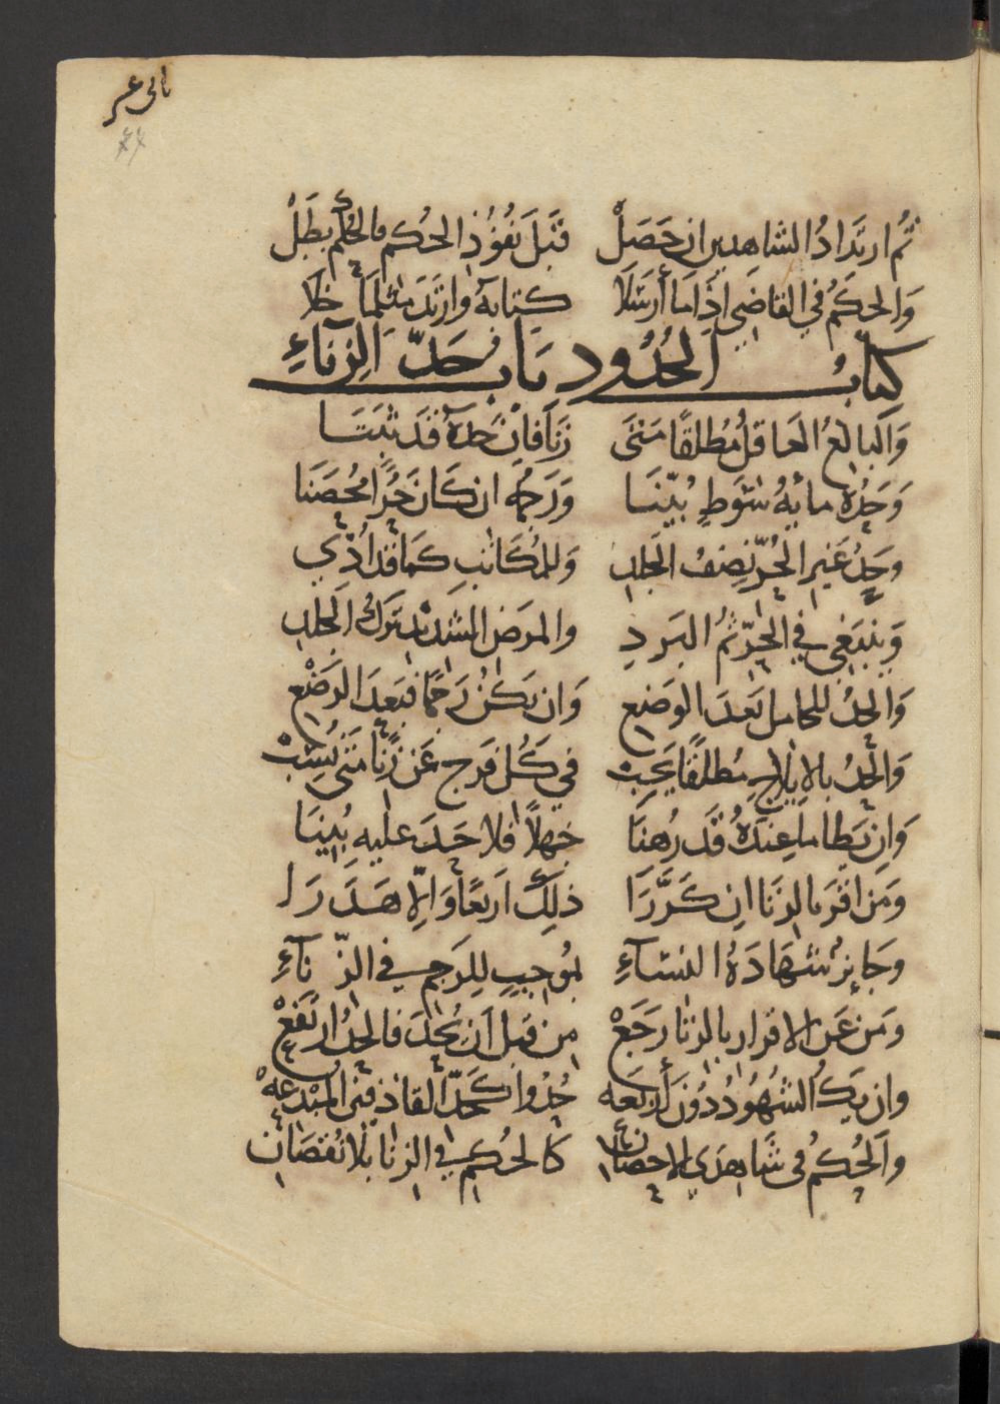 ثاني عشر
ثُم ارتَدادُ الشاهدين ان حَصَلْ قَبلَ نفُوذ الحُكم فالحُكم بطَلْ
وَالحكمُ في القاضي اذا ما أرسَلَا كتابهُ وارتَدَ مثلمَا خلَا
كتابُ الحُدُود بَابُ حَدّ الزِناءِ
وَالبالغُ العاقلُ مُطلقًا مَتىَ زَنَا فان حَدهُ قدَ ثبَتَا
وَحَدهُ مائةُ سَوطٍ بُيّنَا وَرَجمهُ ان كَانَ حُرًا محُصَنَا
وحَدُ غَيرِ الحُرّ نِصفُ الجَلدِ وَللمُكَاتَبِ كمَا قدَ أدّي
وَينبَغى في الحَرّ ثمُ البَردِ والمرَض الشَديدِ تَركُ الجَلدِ
وَالحدُ للحامل بَعدَ الوَضعِ وَان يَكنُ رَجمًا فبَعدَ الرَضْعِ
وَالحدُ بالايلاجِ مُطلقًا يَجِبْ في كُل فَرج عَن زنًا متَى نُسِبْ
وَان يَطا ما عِندَهُ قَد رُهنَا جَهلًا فلا حَدَ عليه بُينَا
وَمَن اقَرَ بالزنَا ان كَرَّرَا ذلكَ اربعًا وَالّا هَدَرَا
وجَايزُ شهَادَةُ النسَآءِ بمُوجبٍ للرَجم في الزّنآءِ
ومَن عَن الاقرار بالزنا رجَعْ من قَبل ان يُحَدَ فالحدُ ارتَفَعْ
وان يَكُ الشهُودُ دُونَ أربَعَه حُدُوا كحَدّ القَاذِفين المبدعهْ
وَالحُكمُ فى شَاهدَي الاحصانِ كالحُكم في الزنَا بلَا نُقصَان